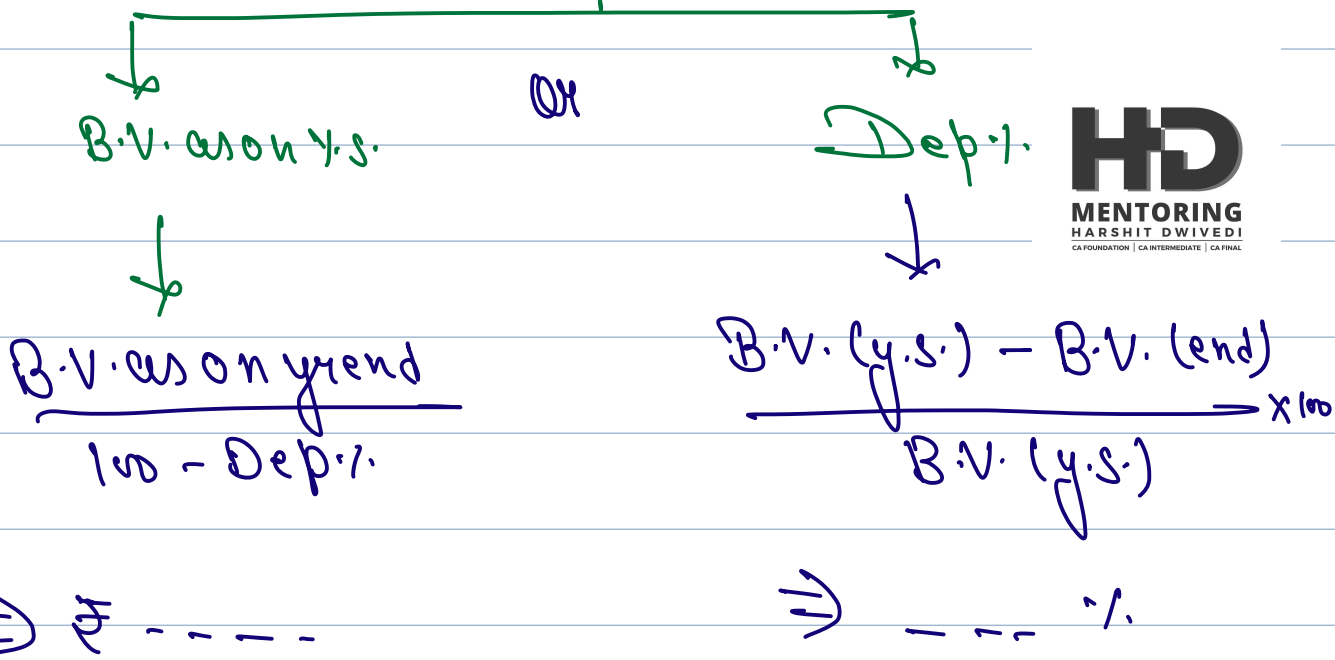 Or
B.V. as on y.s.
Dep.%
HD
MENTORING
HARSHIT DWIVEDI
CA FOUNDATION | CA INTERMEDIATE | CA FINAL
B.V. as on yr end
100 - Dep.%
B.V. (y.s.) - B.V. (end)
B.V. (y.s.)
× 100
⇒ ₹ - - - - -
⇒ - - - %